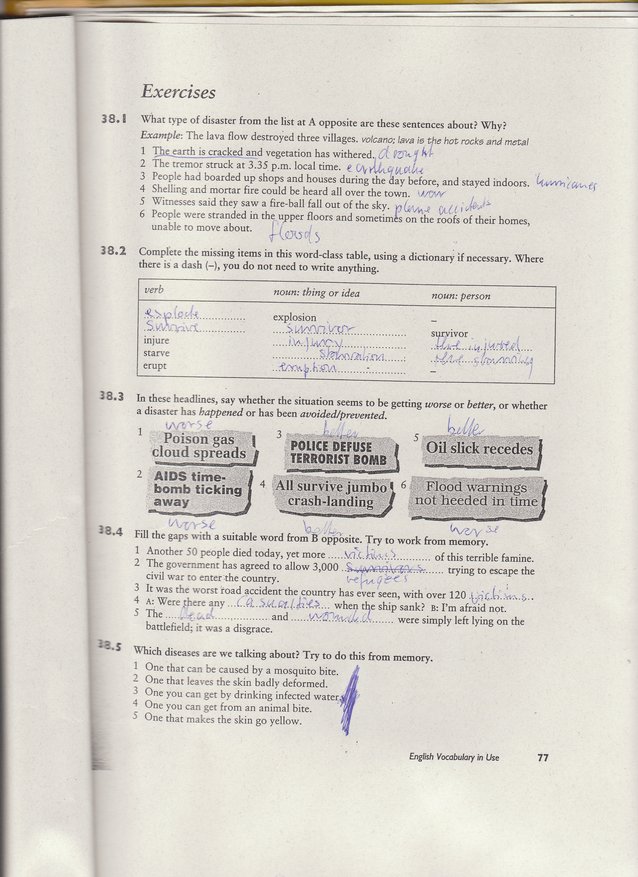 Exercises
38.1 What type of disaster from the list at A opposite are these sentences about? Why?
Example: The lava flow destroyed three villages. volcano; lava is the hot rocks and metal
1 The earth is cracked and vegetation has withered. drought
2 The tremor struck at 3.35 p.m. local time. earthquake
3 People had boarded up shops and houses during the day before, and stayed indoors. hurricanes
4 Shelling and mortar fire could be heard all over the town. war
5 Witnesses said they saw a fire-ball fall out of the sky. plane accidents
6 People were stranded in the upper floors and sometimes on the roofs of their homes,
unable to move about. floods
38.2 Complete the missing items in this word-class table, using a dictionary if necessary. Where
there is a dash (–), you do not need to write anything.
verb noun: thing or idea noun: person
explode explosion –
survive survivor survivor
injure injury the injured
starve starvation the starving
erupt eruption –
38.3 In these headlines, say whether the situation seems to be getting worse or better, or whether
a disaster has happened or has been avoided/prevented.
worse better better
1 Poison gas
cloud spreads
3 POLICE DEFUSE
TERRORIST BOMB
5 Oil slick recedes
2 AIDS time-
bomb ticking
away
4 All survive jumbo
crash-landing
6 Flood warnings
not heeded in time
worse better worse
38.4 Fill the gaps with a suitable word from B opposite. Try to work from memory.
1 Another 50 people died today, yet more victims of this terrible famine.
2 The government has agreed to allow 3,000 survivors trying to escape the
civil war to enter the country. refugees
3 It was the worst road accident the country has ever seen, with over 120 victims.
4 A: Were there any casualties when the ship sank? B: I'm afraid not.
5 The dead and wounded were simply left lying on the
battlefield; it was a disgrace.
38.5 Which diseases are we talking about? Try to do this from memory.
1 One that can be caused by a mosquito bite.
2 One that leaves the skin badly deformed.
3 One you can get by drinking infected water.
4 One you can get from an animal bite.
5 One that makes the skin go yellow.
English Vocabulary in Use 77